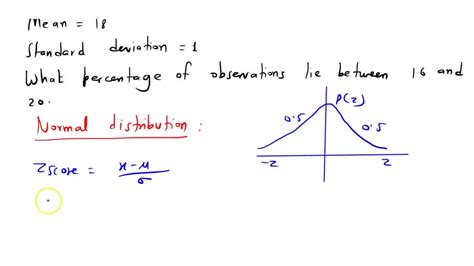 Mean = 18
Standard deviation = 1
What percentage of observations lie between 16 and
20.
Normal distribution :
P(z)
0.5
0.5
-2
2
Zscore = x-μ
σ